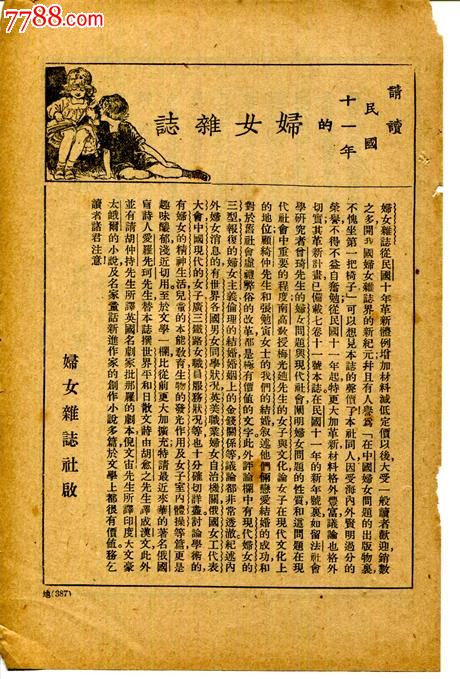 7788.com
請讀
民國
十一年
的
婦女雜誌
婦女雜誌從民國十年革新體例增加材料減低定價以後大受一般讀者歡迎銷數
之多開我國婦女雜誌界的新紀元幷且有人譽爲「在中國婦女問題的出版物裏
不愧坐第一把椅子」可以想見本誌的聲價了本社同人因受海內外賢明過分的
榮譽不得不益自奮勉從民國十一年起特更大加革新材料格外豐富議論也格外
切實其革新計畫已備載七卷十一號本誌在民國十一年的新年號裏如留法社會
學研究者曾琦先生的婦女問題與現代社會闡明婦女問題的性質和這問題在現
代社會中重要的程度南高敎授梅光迪先生的女子與文化論女子在現代文化上
的地位顧綺仲先生和張勉寅女士的我們的結婚叙述他們倆戀愛結婚的成功和
對於舊社會虛禮弊俗的改革都是極有價値的文字此外評論欄中有現代婦女的
三型報復的婦女主義倫理的結婚婚姻上的金錢關係等議論都非常透澈紀述內
外婦女消息的有世界各國男女同學狀況英美職業婦女自治機關俄國女工代表
大會中國現代的女子廣三鐵路女職員服務狀況等也十分確切詳盡討論學術的
有婦女的精神生活兒童的本能敎育生物的發光作用及女子室內體操等篇更是
趣味醲郁淺近切用至於文學一欄比從前更大加擴充特請最近來華的著名俄國
盲詩人愛羅先珂先生替本誌撰世界平和日散文詩由胡愈之先生譯成漢文此外
並有請胡仲持先生所譯英國名劇家批那羅的劇本倪文宙先生所譯印度大文豪
太峨爾的小說及名家黨蓝新進作家的創作小說多篇於文學上都很有價値務乞
讀者諸君注意
婦女雜誌社啟
地(387)